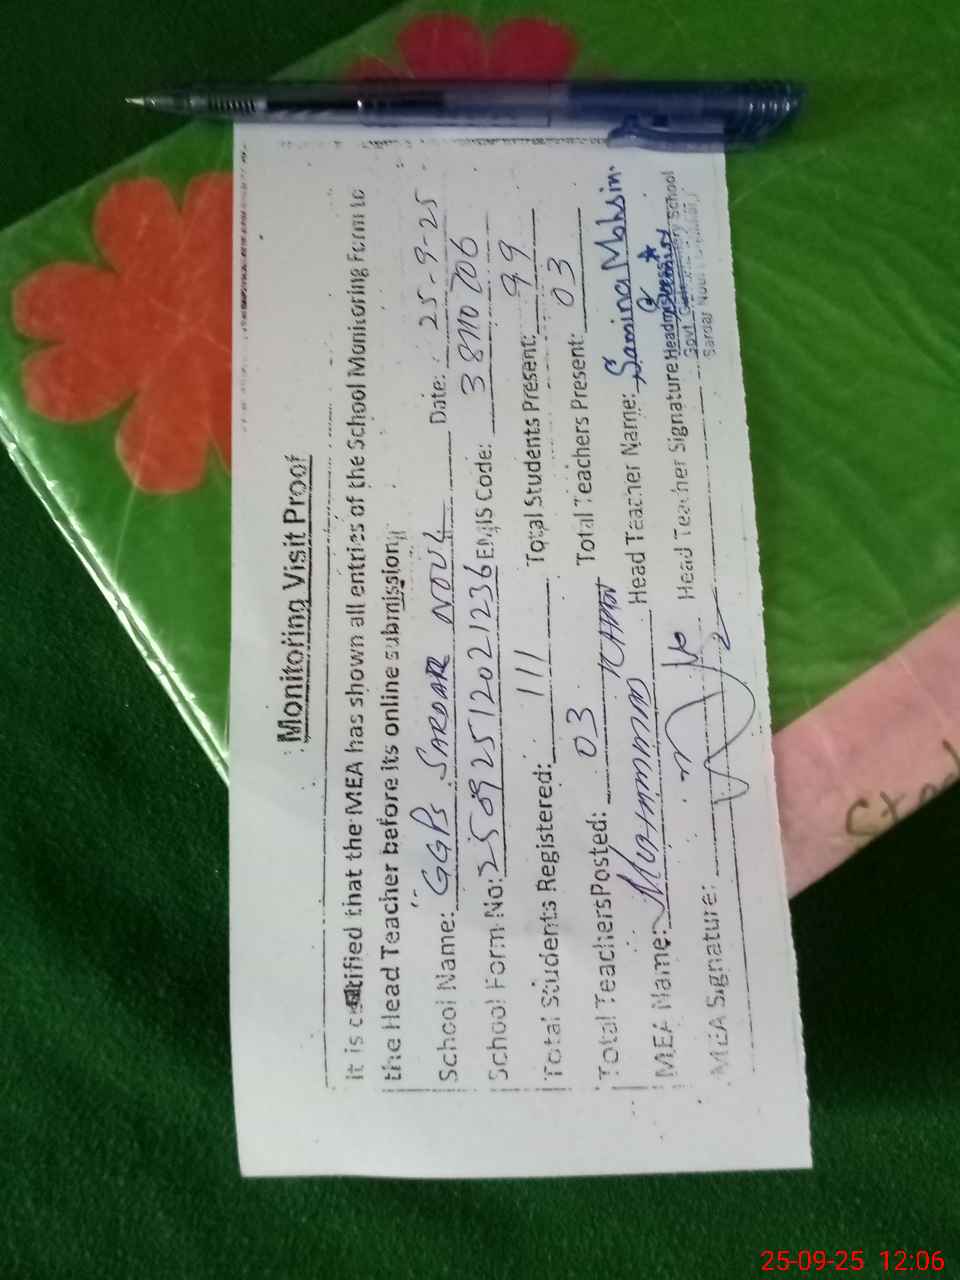 Monitoring Visit Proof
It is certified that the MEA has shown all entries of the School Monitoring Form to
the Head Teacher before its online submission.
School Name: GGPS SARDAR NOUL Date: 25-9-25
School Form No: 2509251202121236 EMIS Code: 38110706
Total Students Registered: 111 Total Students Present: 99
Total Teachers Posted: 03 Total Teachers Present: 03
MEA Name: MUHAMMAD KHAN Head Teacher Name: Samina Mohsin.
MEA Signature: Head Teacher Signature Headmistress
Govt. School
Sardar Noul
25-09-25 12:06